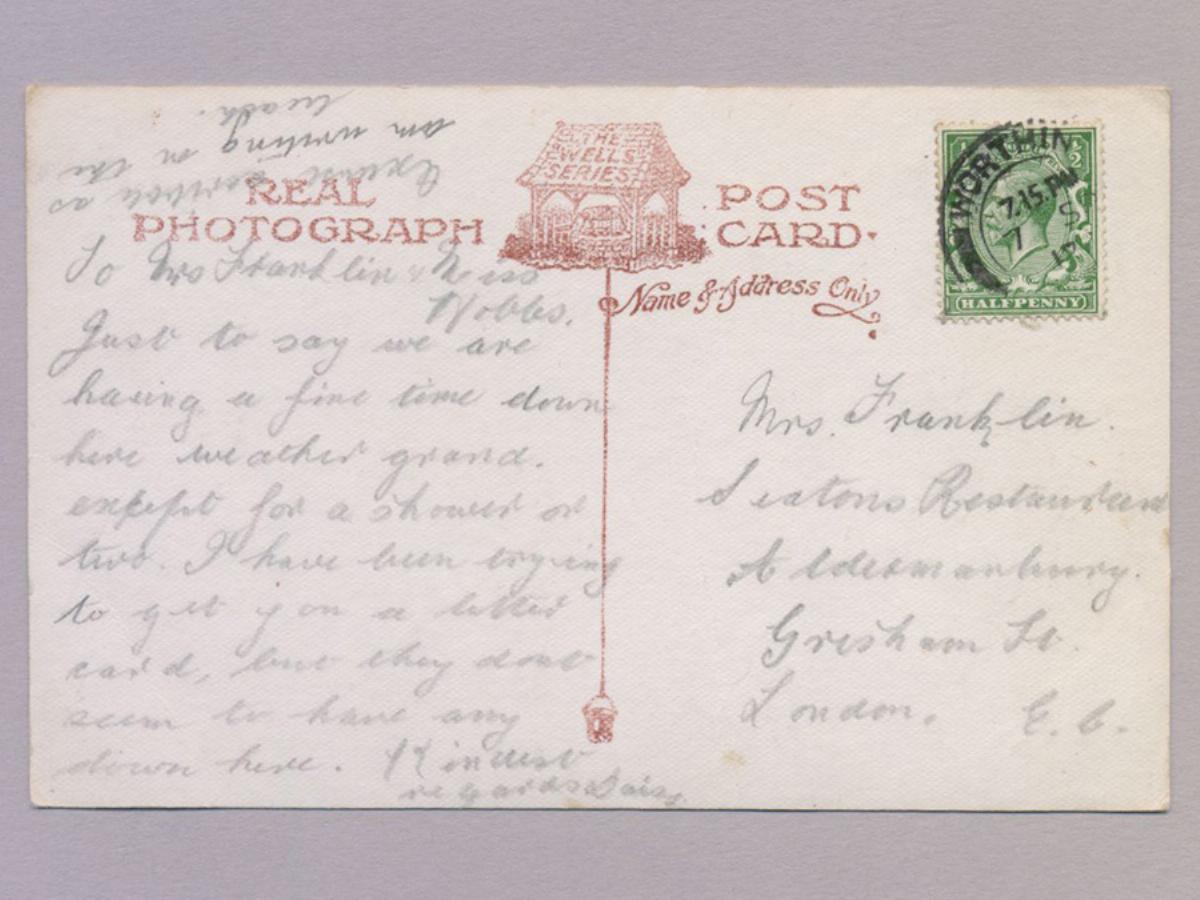 Excuse scribble as
am writing on the
heath.
THE
WELLS
SERIES
REAL
PHOTOGRAPH
POST
CARD.
Name & Address Only
WORTHIN
7.15.PM
7 S
17
HALFPENNY
To Mrs Franklin & Miss
Nobbs.
Just to say we are
having a fine time down
here weather grand.
except for a shower or
two. I have been trying
to get you a letter
card, but they dont
seem to have any
down here. Kindest
regards Daisy
Mrs. Franklin.
Seatons Restaurant
Aldermanbury.
Gresham St.
London. E. C.